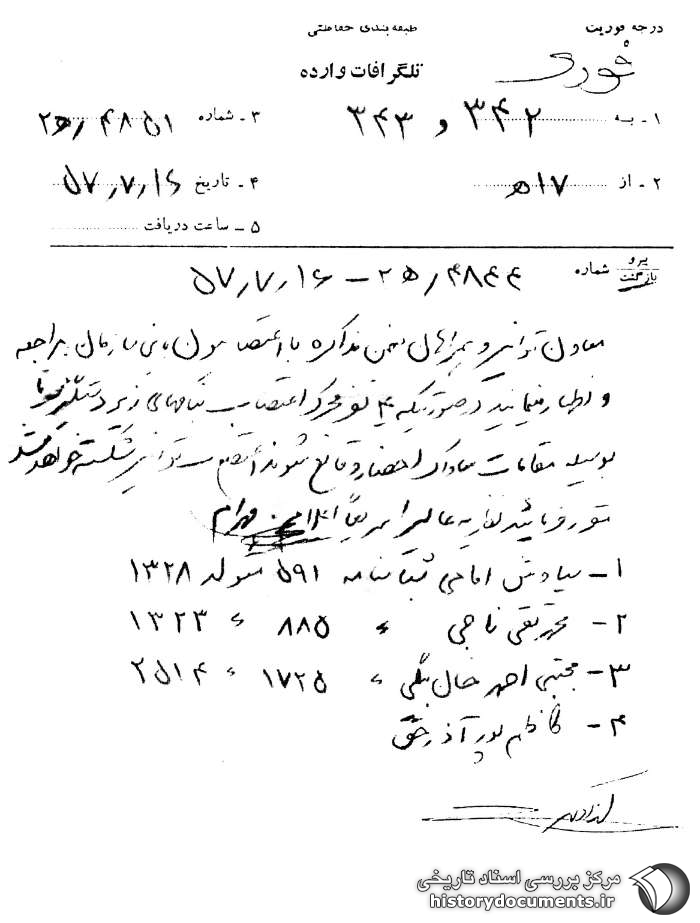 درجه فوریت
طبقه‌بندی حفاظتی
فوری
تلگرافات وارده
۱ - به ۳۴۲ و ۳۴۳
۳ - شماره ۲ﻫ/۴۸۵۱
۲ - از ۱۷ﻫ
۴ - تاریخ ۵۷/۷/۱۶
۵ - ساعت دریافت
پیرو
بازگشت شماره ۲ﻫ/۴۸۴۴ - ۵۷/۷/۱۶
معاون توانیر و همراهان ضمن مذاکره با سازمان مراجعه
و اظهار مینمایند در صورتیکه ۴ نفر محرک اعتصاب بنامهای زیر دستگیر و یا
بوسیله مقامات ساواک احضار و قانع شوند اعتصاب توانیر شکسته خواهد شد
فرمائید نظریه عالی را سریعاً
۱ - سیاوش امامی شناسنامه ۵۹۱ متولد ۱۳۲۸
۲ - محمدتقی ناجی 〃 ۸۸۵ 〃 ۱۳۲۳
۳ - مجتبی احمد خان بگی 〃 ۱۷۲۵ 〃 ۲۵۱۴
۴ - کاظم پور آذر
مرکز بررسی اسناد تاریخی
historydocuments.ir